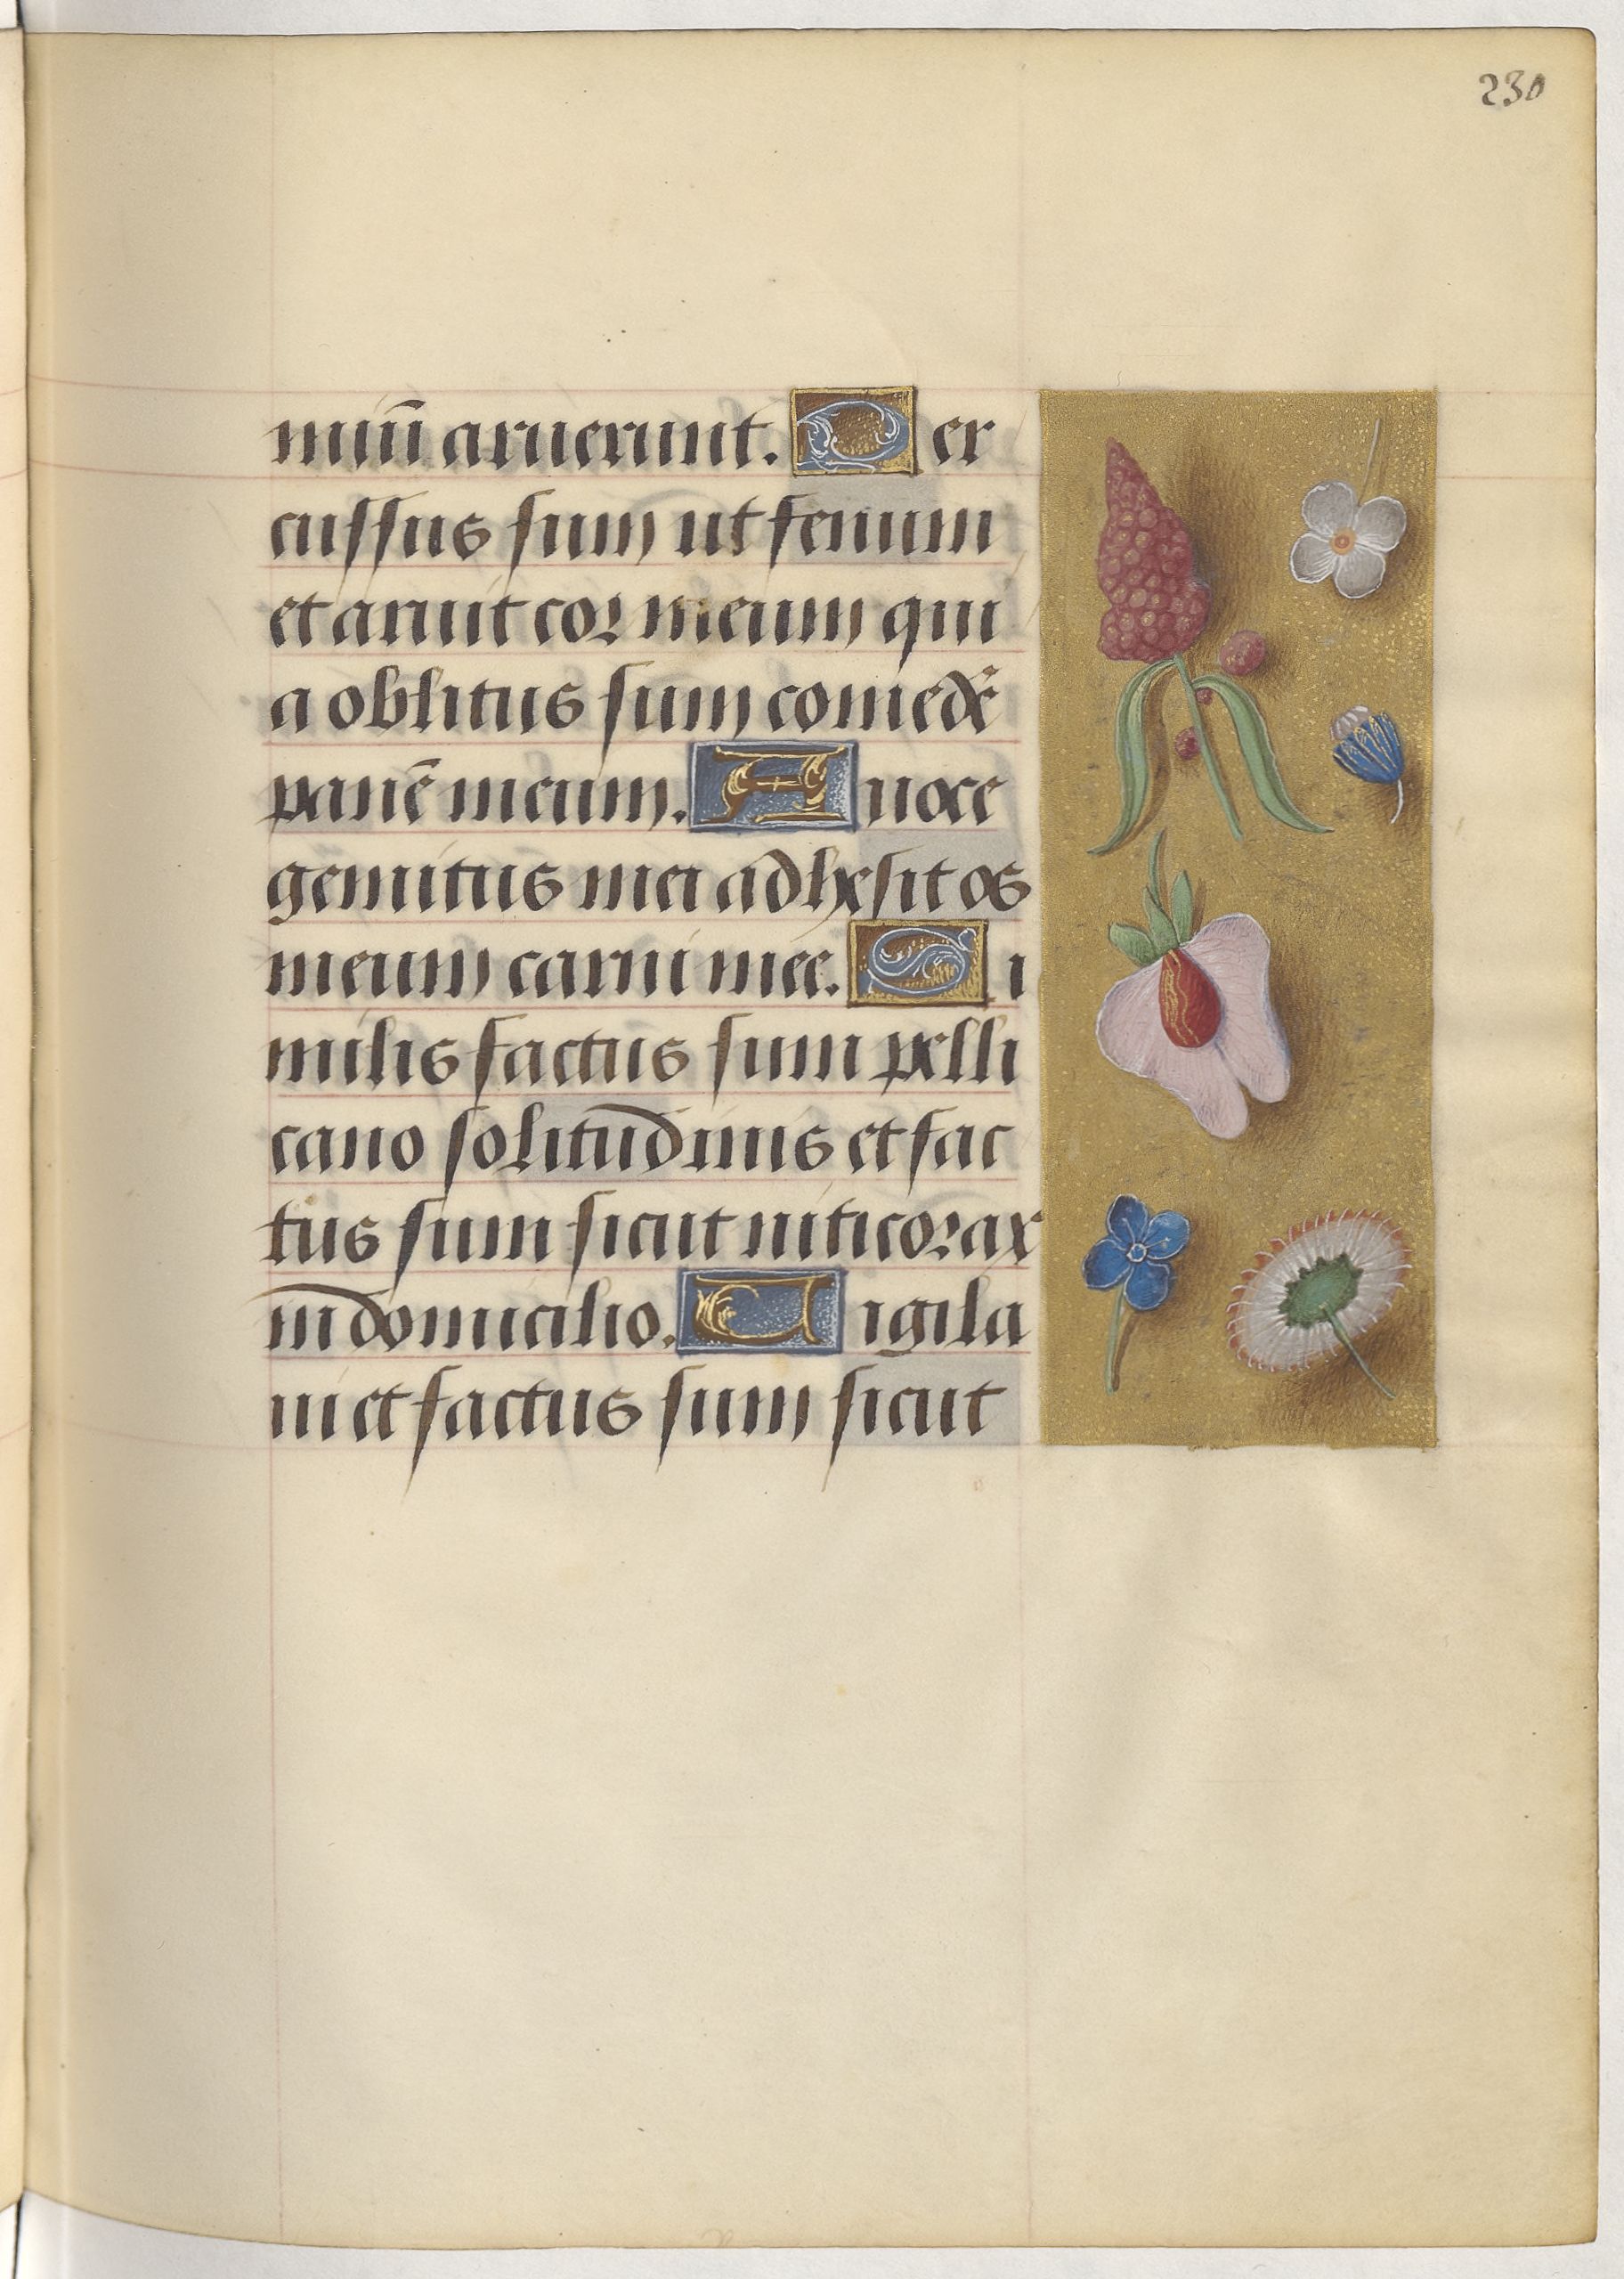 230
miū aruerunt. Per
cussus sum ut fenum
et aruit cor meum qui
a oblitus sum comedē
panē meum. A uoce
gemitus mei adhesit os
meum carni mee. Si
milis factus sum pelli
cano solitudinis et fac
tus sum sicut niticorax
in domicilio. Uigila
ui et factus sum sicut